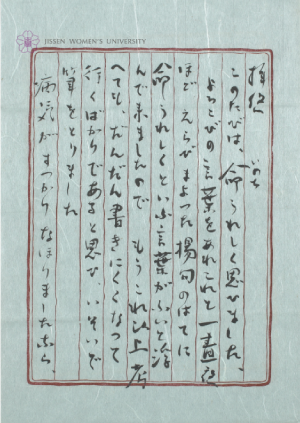 JISSEN WOMEN'S UNIVERSITY
拝啓
このたびは、命うれしく思ひました、
いのち
よろこびの言葉をあれこれと一晝夜
ほどえらびまよつた揚句のはてに
命うれしくといふ言葉がふいと浮
んで来ましたので もうこれ以上考
へても、だんだん書きにくくなつて
行くばかりであると思ひ、いそいで
筆をとりました
病気がすつかりなほりましたら、